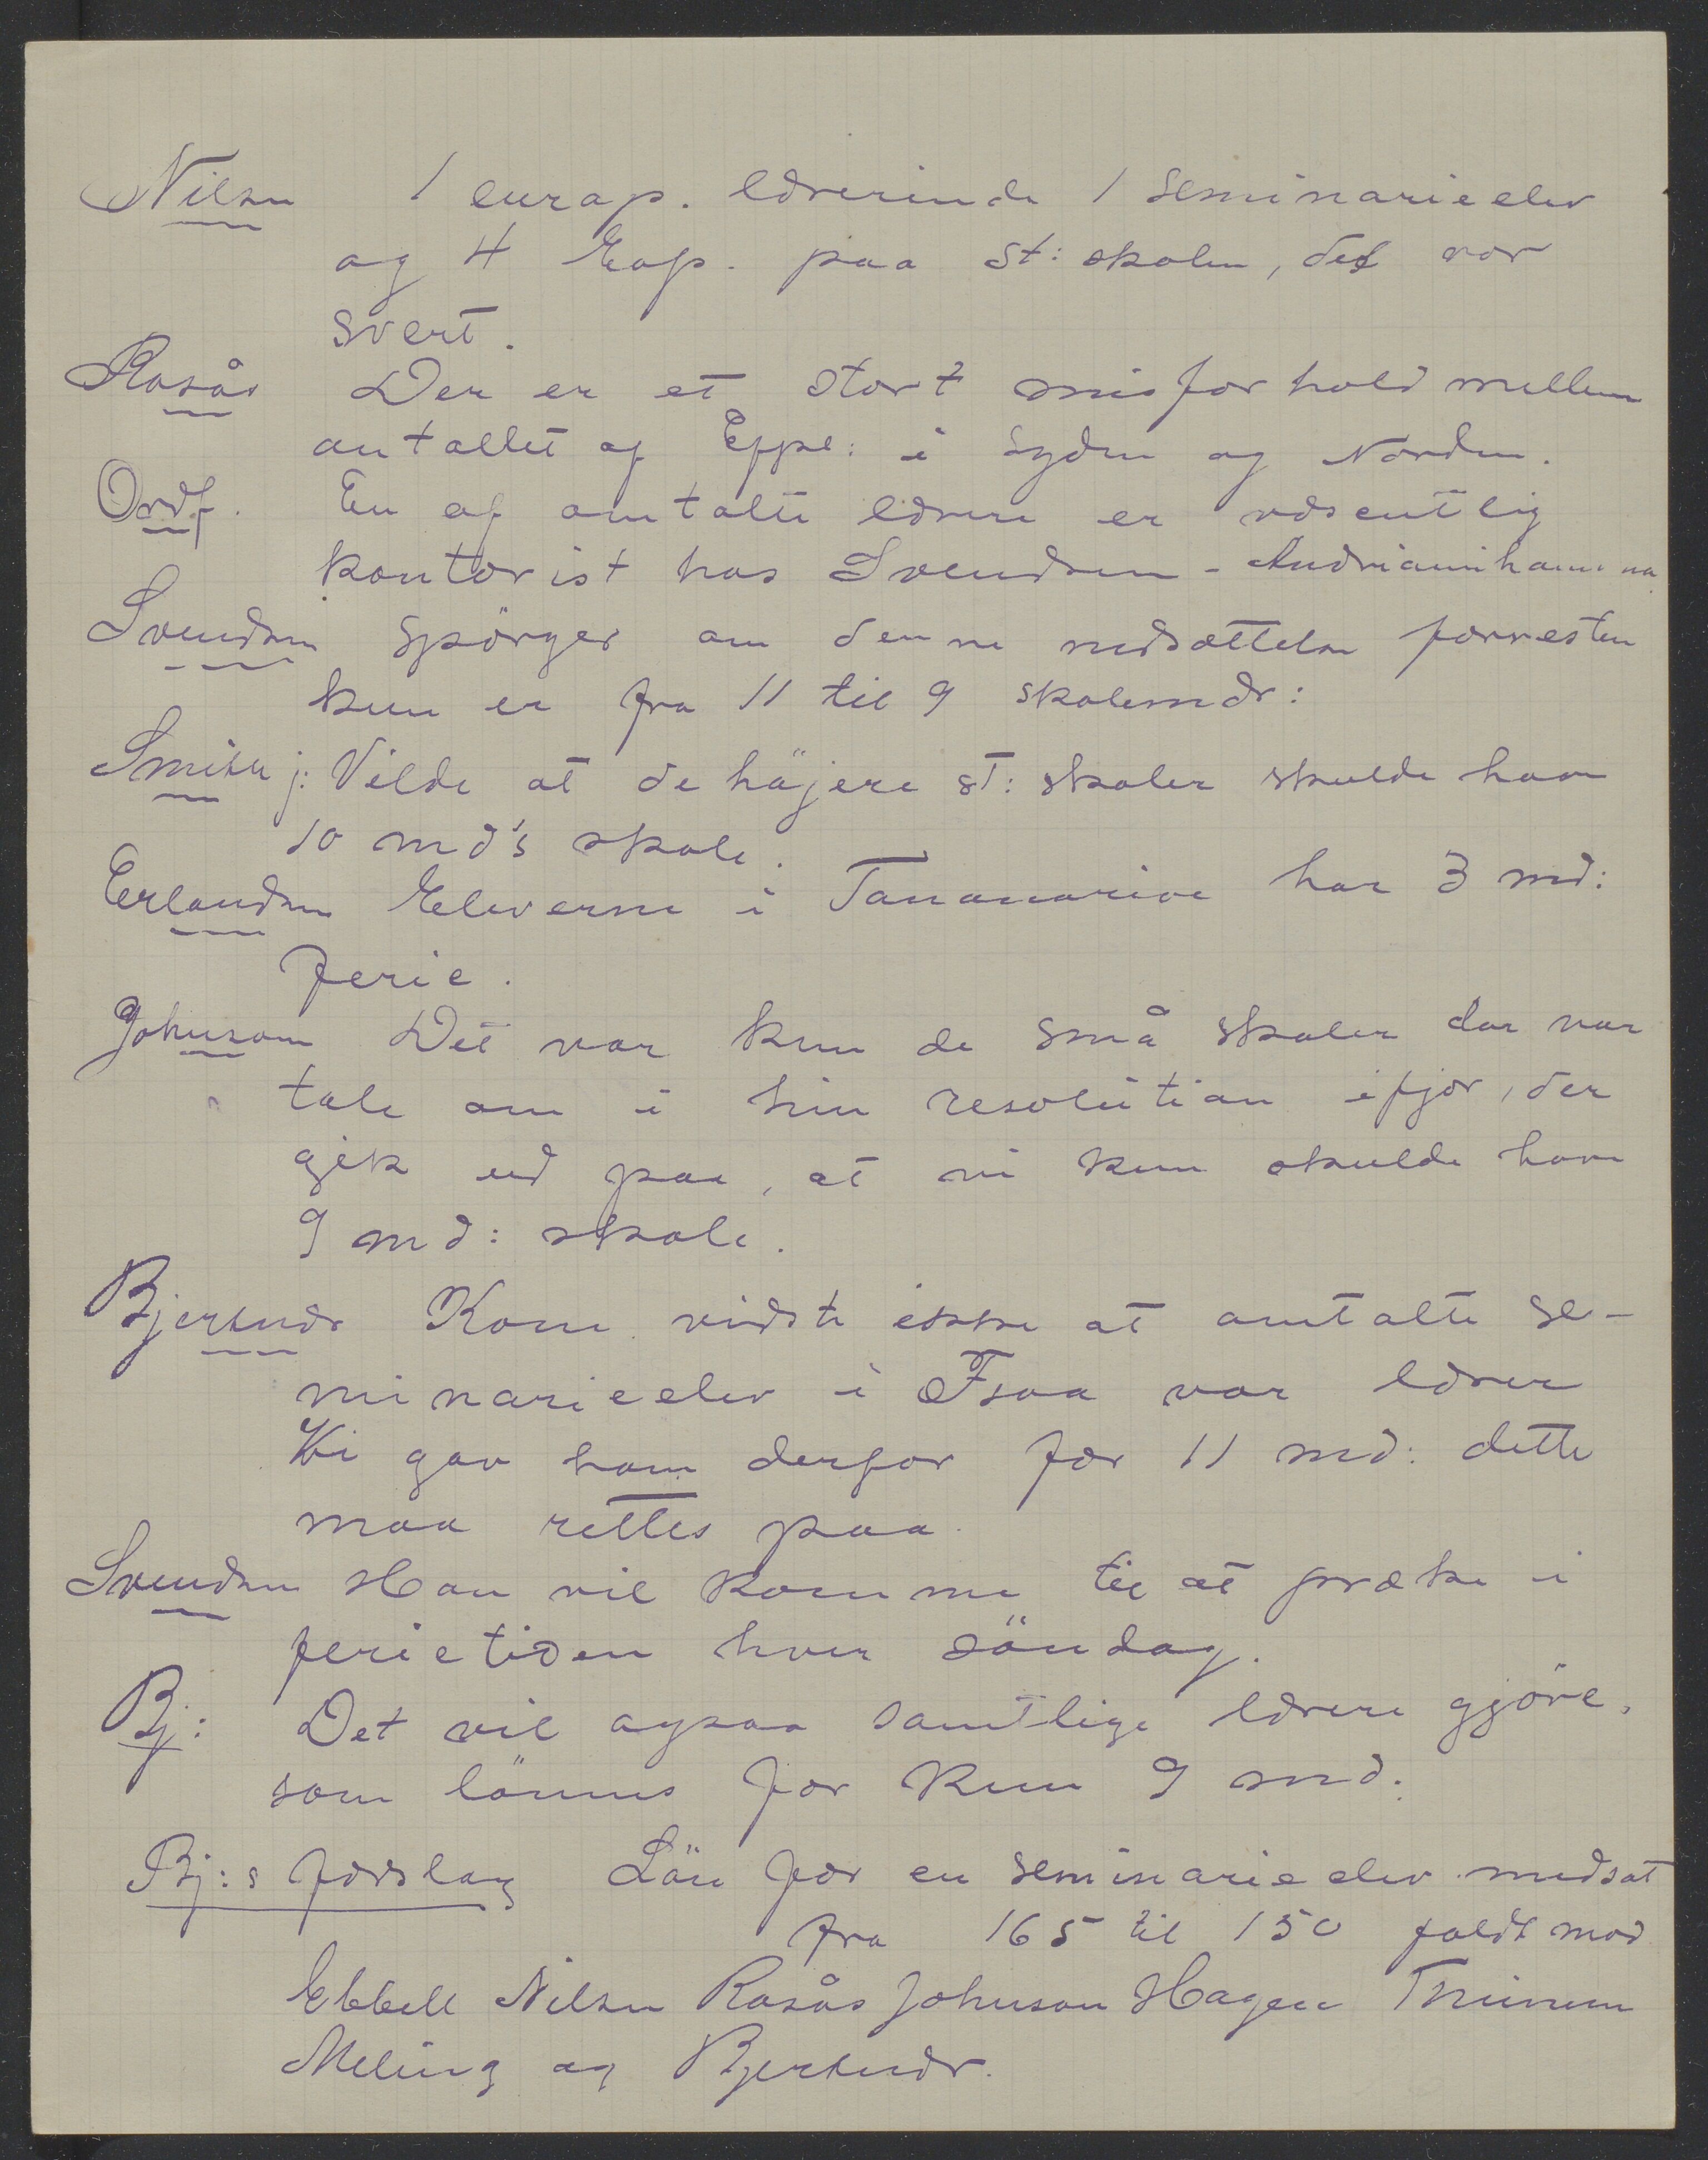 Nilsen 1 europ. lærerinde 1 seminarieelev
og 4 Eap. paa st: skolen, det var
svert.
Rosås Der er et stort misforhold mellem
antallet af Epps: i syden og Norden.
Ordf. En af omtalte lærere er væsentlig
kontorist hos Svendsen -
Svendsen spörger om denne nedsættelse forresten
kun er fra 11 til 9 skolemdr:
Smith j: Vilde at de höjere st: skoler skulde have
10 md's skole.
Erlandsen Eleverne i Tananarive har 3 md:
ferie.
Johnson Det var kun de små skoler der var
tale om i hin resolution ifjor, der
gik ud paa, at vi kun skulde have
9 md: skole.
Bjertnæs Kom. vidste ikke at omtalte se-
minarieelev i Fsoa var lærer
Vi gav ham derfor for 11 md: dette
maa rettes paa.
Svendsen Han vil komme til at præke i
ferietiden hver söndag.
Bj: Det vil ogsaa samtlige lærere gjöre,
som lönnes for kun 9 md.
Bj:s forslag Lön for en seminarieelev nedsat
fra 165 til 150 faldt mod
Ebbell Nilsen Rosås Johnson Hagen Thunem
Meling og Bjertnæs.